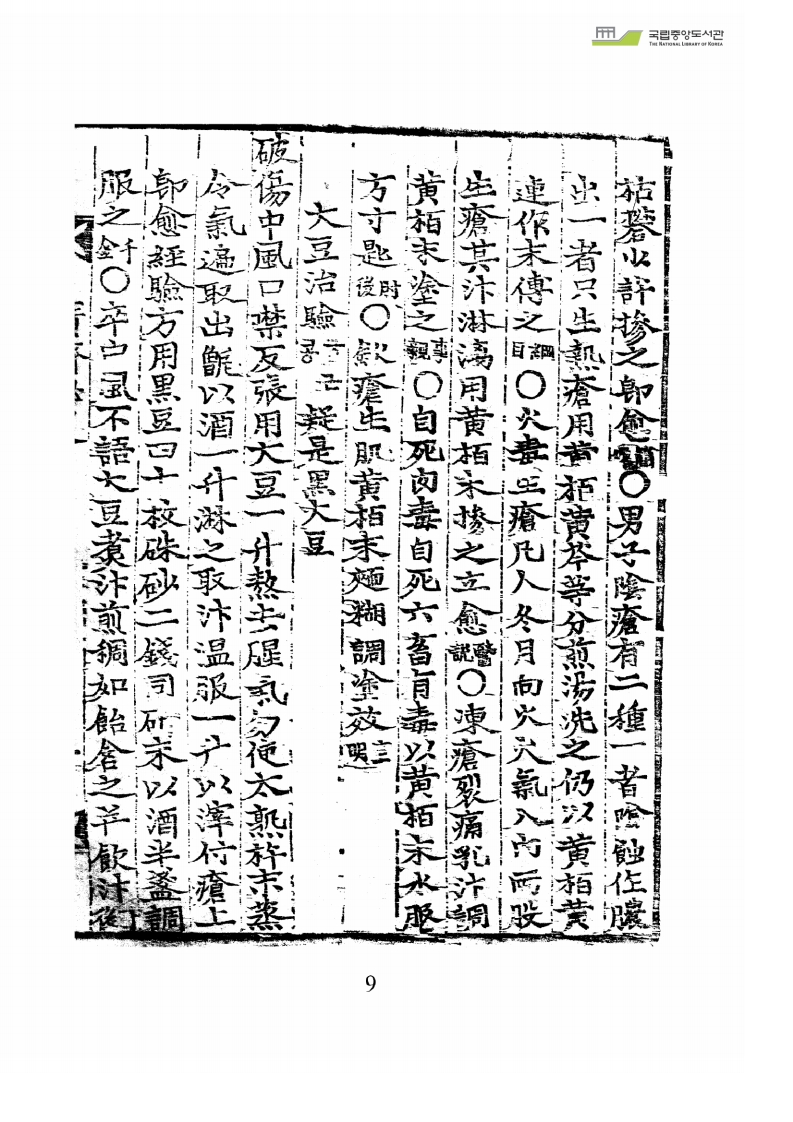 국립중앙도서관
THE NATIONAL LIBRARY OF KOREA
枯礬少許摻之卽愈〇男子陰瘡有二種一者陰蝕作膿
出一者只生熱瘡用黃栢黃芩等分煎湯洗之仍以黃栢黃
連作末傅之綱目〇火毒生瘡凡人冬月向火火氣入內兩股
生瘡其汁淋漓用黃栢末摻之立愈醫說〇凍瘡裂痛乳汁調
黃栢末塗之事親〇自死肉毒自死六畜有毒以黃栢末水服
方寸匙肘後〇歛瘡生肌黃栢末麵糊調塗效宣明
大豆治驗 疑是黑大豆
破傷中風口噤反張用大豆一升熬去腥氣勿使太熟杵末蒸
令氣遍取出甑以酒一升淋之取汁温服一升以滓付瘡上
卽愈經驗方用黑豆四十枚硃砂二錢同硏末以酒半盞調
服之千金〇卒中風不語大豆煮汁煎稠如飴含之幷飮汁後
9